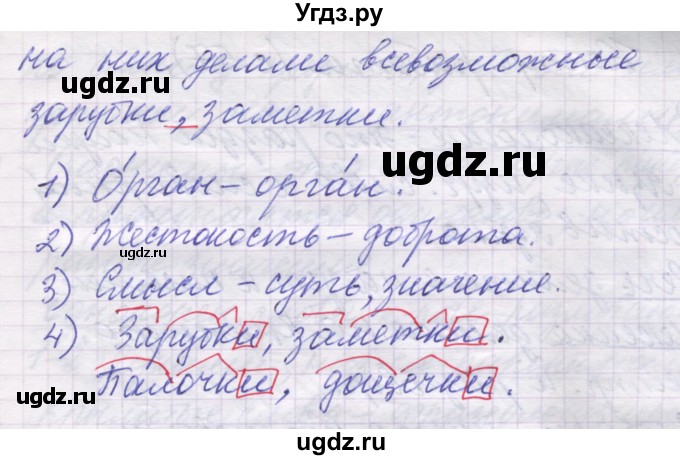 Угдз.ру
на них делали всевозможные
ugdz.ru
зарубки, заметки.
ugdz.ru
ugdz.ru
1) О́рган – орга́н.
2) Жестокость – доброта.
ugdz.ru
ugdz.ru
3) Смысл – суть, значение.
4) Зарубки, заметки.
ugdz.ru
Палочки, дощечки.
ugdz.ru
ugdz.ru